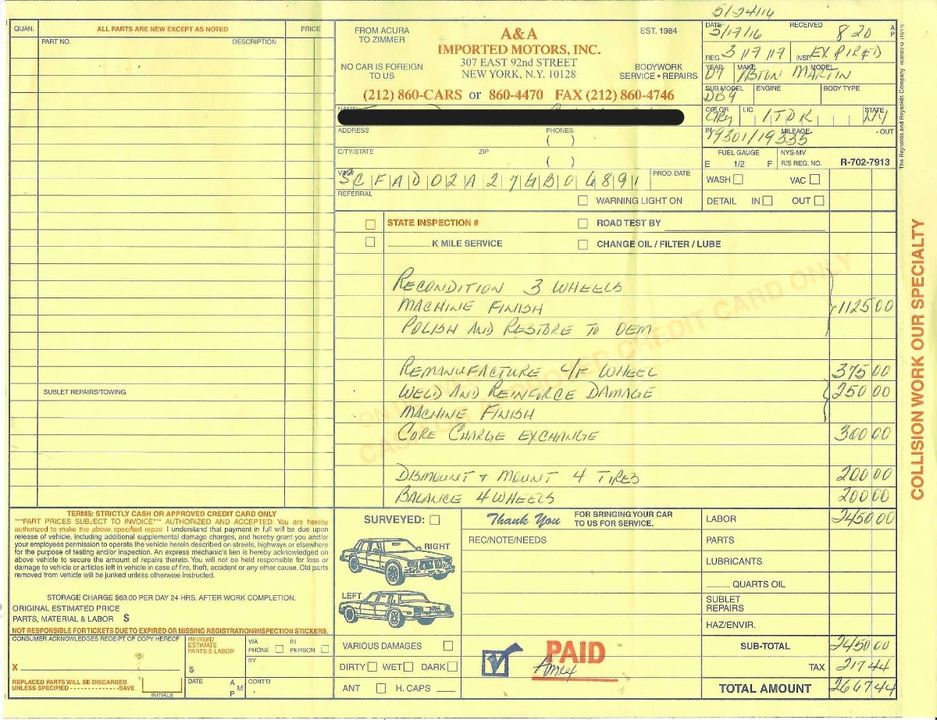 5/24/16
QUAN. ALL PARTS ARE NEW EXCEPT AS NOTED PRICE
PART NO. DESCRIPTION
FROM ACURA TO ZIMMER
A&A
EST. 1984
IMPORTED MOTORS, INC.
307 EAST 92nd STREET
NO CAR IS FOREIGN TO US
NEW YORK, N.Y. 10128
BODYWORK SERVICE • REPAIRS
(212) 860-CARS or 860-4470 FAX (212) 860-4746
DATE 5/17/16 RECEIVED 8 20 A P
REG. 3/17/17 INSP. EXPIRED
YEAR 07 MAKE ASTON MARTIN MODEL
SUB MODEL DB9 ENGINE BODY TYPE
COLOR GRY LIC. 1TDK STATE NY
IN 19301/19335 MILEAGE - OUT
FUEL GAUGE NYS-MV
E 1/2 F R/S REG. NO. R-702-7913
WASH VAC
DETAIL IN OUT
NAME
ADDRESS PHONES
( )
CITY/STATE ZIP
( )
VIN# SCFAD02A27GB0 PROD DATE
REFERRAL
WARNING LIGHT ON
STATE INSPECTION # ROAD TEST BY
K MILE SERVICE CHANGE OIL / FILTER / LUBE
RECONDITION 3 WHEELS
MACHINE FINISH 1125 00
POLISH AND RESTORE TO OEM
REMANUFACTURE WHEEL 375 00
WELD AND REINFORCE DAMAGE 250 00
MACHINE FINISH
CORE CHARGE EXCHANGE 300 00
DISMOUNT + MOUNT 4 TIRES 200 00
BALANCE 4 WHEELS 200 00
SUBLET REPAIRS/TOWING
COLLISION WORK OUR SPECIALTY
The Reynolds and Reynolds Company
TERMS: STRICTLY CASH OR APPROVED CREDIT CARD ONLY
"""PART PRICES SUBJECT TO INVOICE""" AUTHORIZED AND ACCEPTED: You are hereby
authorized to make the above specified repair. I understand that payment in full will be due upon
release of vehicle, including additional supplemental damage charges, and hereby grant you and/or
your employees permission to operate the vehicle herein described on streets, highways or elsewhere
for the purpose of testing and/or inspection. An express mechanic's lien is hereby acknowledged on
above vehicle to secure the amount of repairs thereto. You will not be held responsible for loss or
damage to vehicle or articles left in vehicle in case of fire, theft, accident or any other cause. Old parts
removed from vehicle will be junked unless otherwise instructed.
STORAGE CHARGE $60.00 PER DAY 24 HRS. AFTER WORK COMPLETION.
ORIGINAL ESTIMATED PRICE
PARTS, MATERIAL & LABOR $
NOT RESPONSIBLE FOR TICKETS DUE TO EXPIRED OR MISSING REGISTRATION/INSPECTION STICKERS.
CONSUMER ACKNOWLEDGES RECEIPT OF COPY HEREOF
X
REPLACED PARTS WILL BE DISCARDED
UNLESS SPECIFIED SAVE
INITIALS
REVISED ESTIMATE PARTS & LABOR
$
VIA PHONE IN PERSON
BY
DATE A M P CONT'D
SURVEYED:
RIGHT
LEFT
VARIOUS DAMAGES
DIRTY WET DARK
ANT H. CAPS
Thank You FOR BRINGING YOUR CAR TO US FOR SERVICE.
REC/NOTE/NEEDS
PAID
Amex
LABOR 2450 00
PARTS
LUBRICANTS
QUARTS OIL
SUBLET REPAIRS
HAZ/ENVIR.
SUB-TOTAL 2450 00
TAX 217 44
TOTAL AMOUNT 2667 44